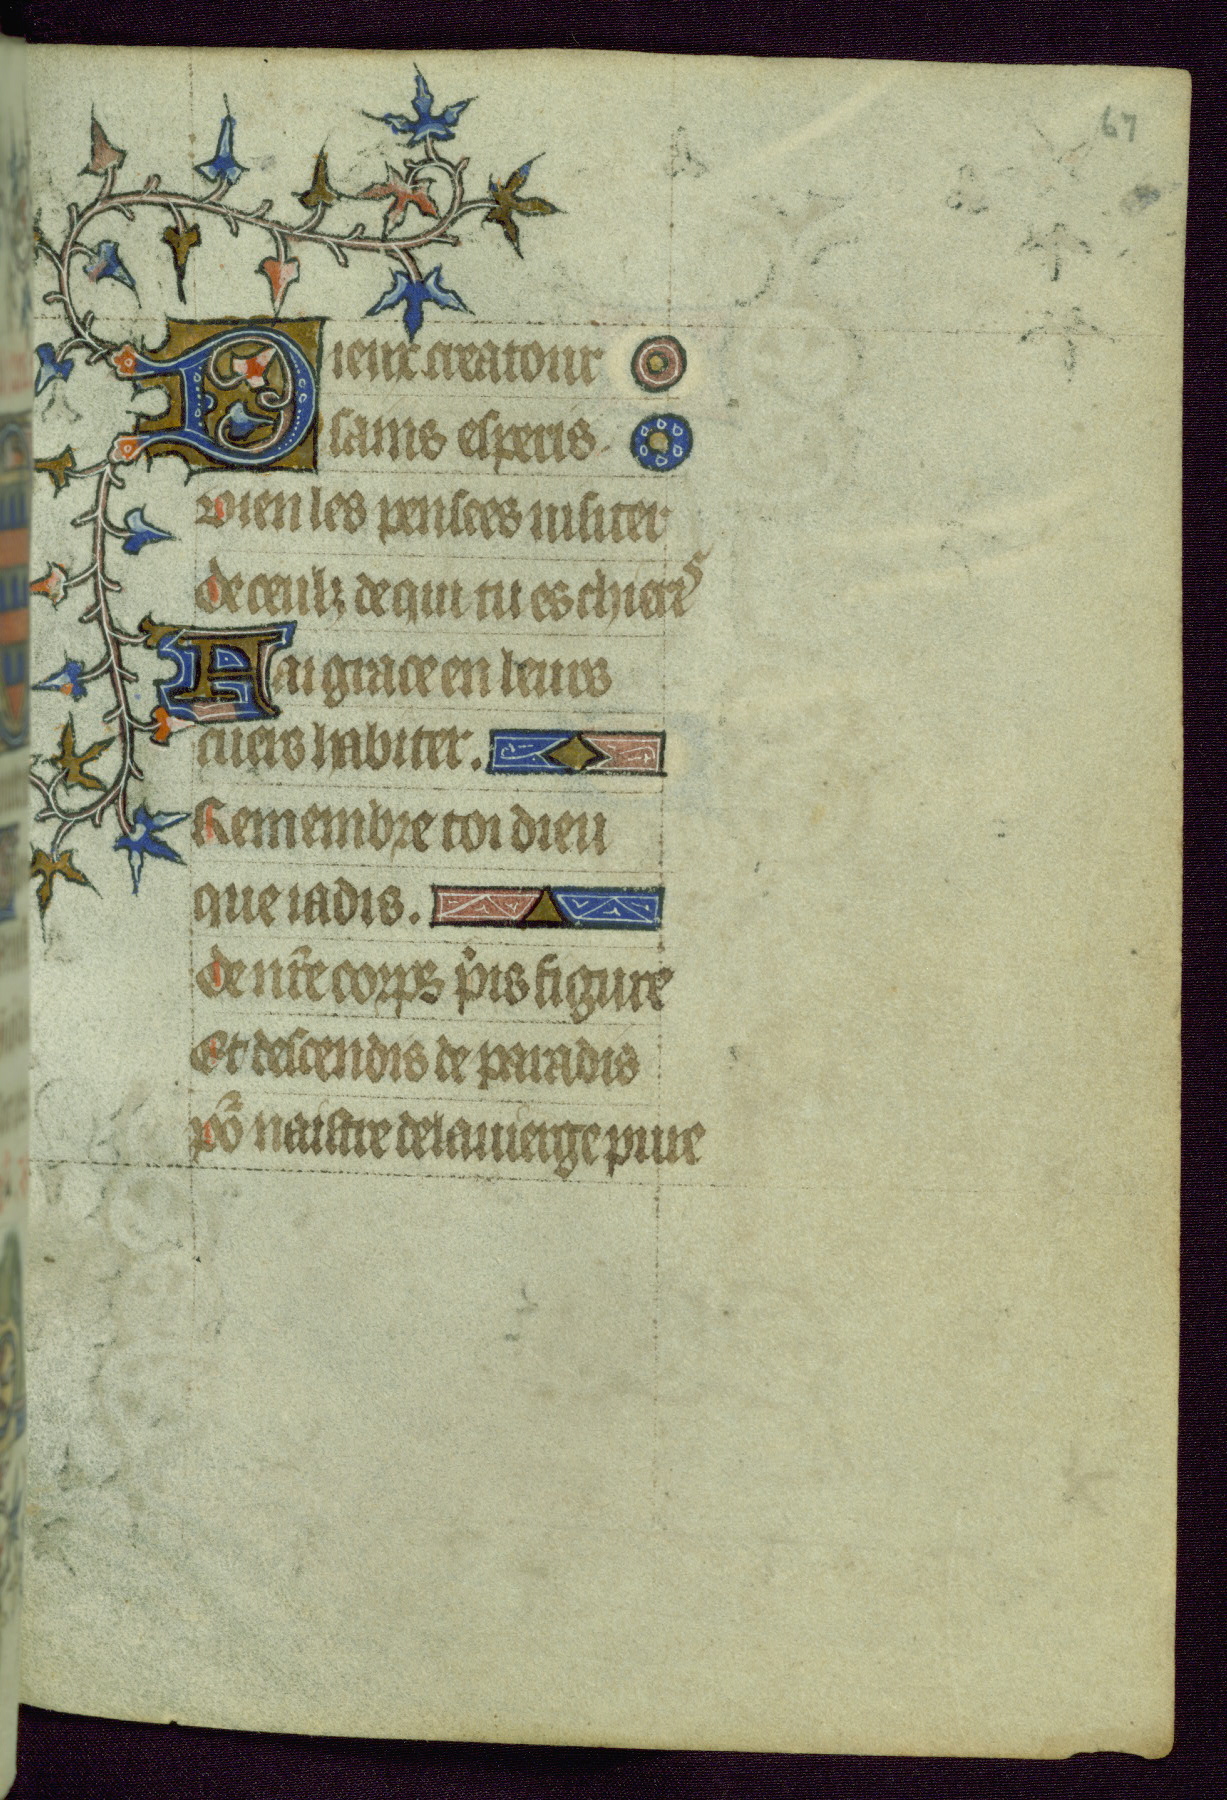 67
Dieux creatour
sains esperis.
vien les pensees uisiter
de ceulz de qui tu es chiers
Ai grace en leurs
cuers habiter.
Remembre toi dieu
que iadis.
de nr̃e corps p̾is figure
Et descendis de paradis
põ naistre de la uierge pure